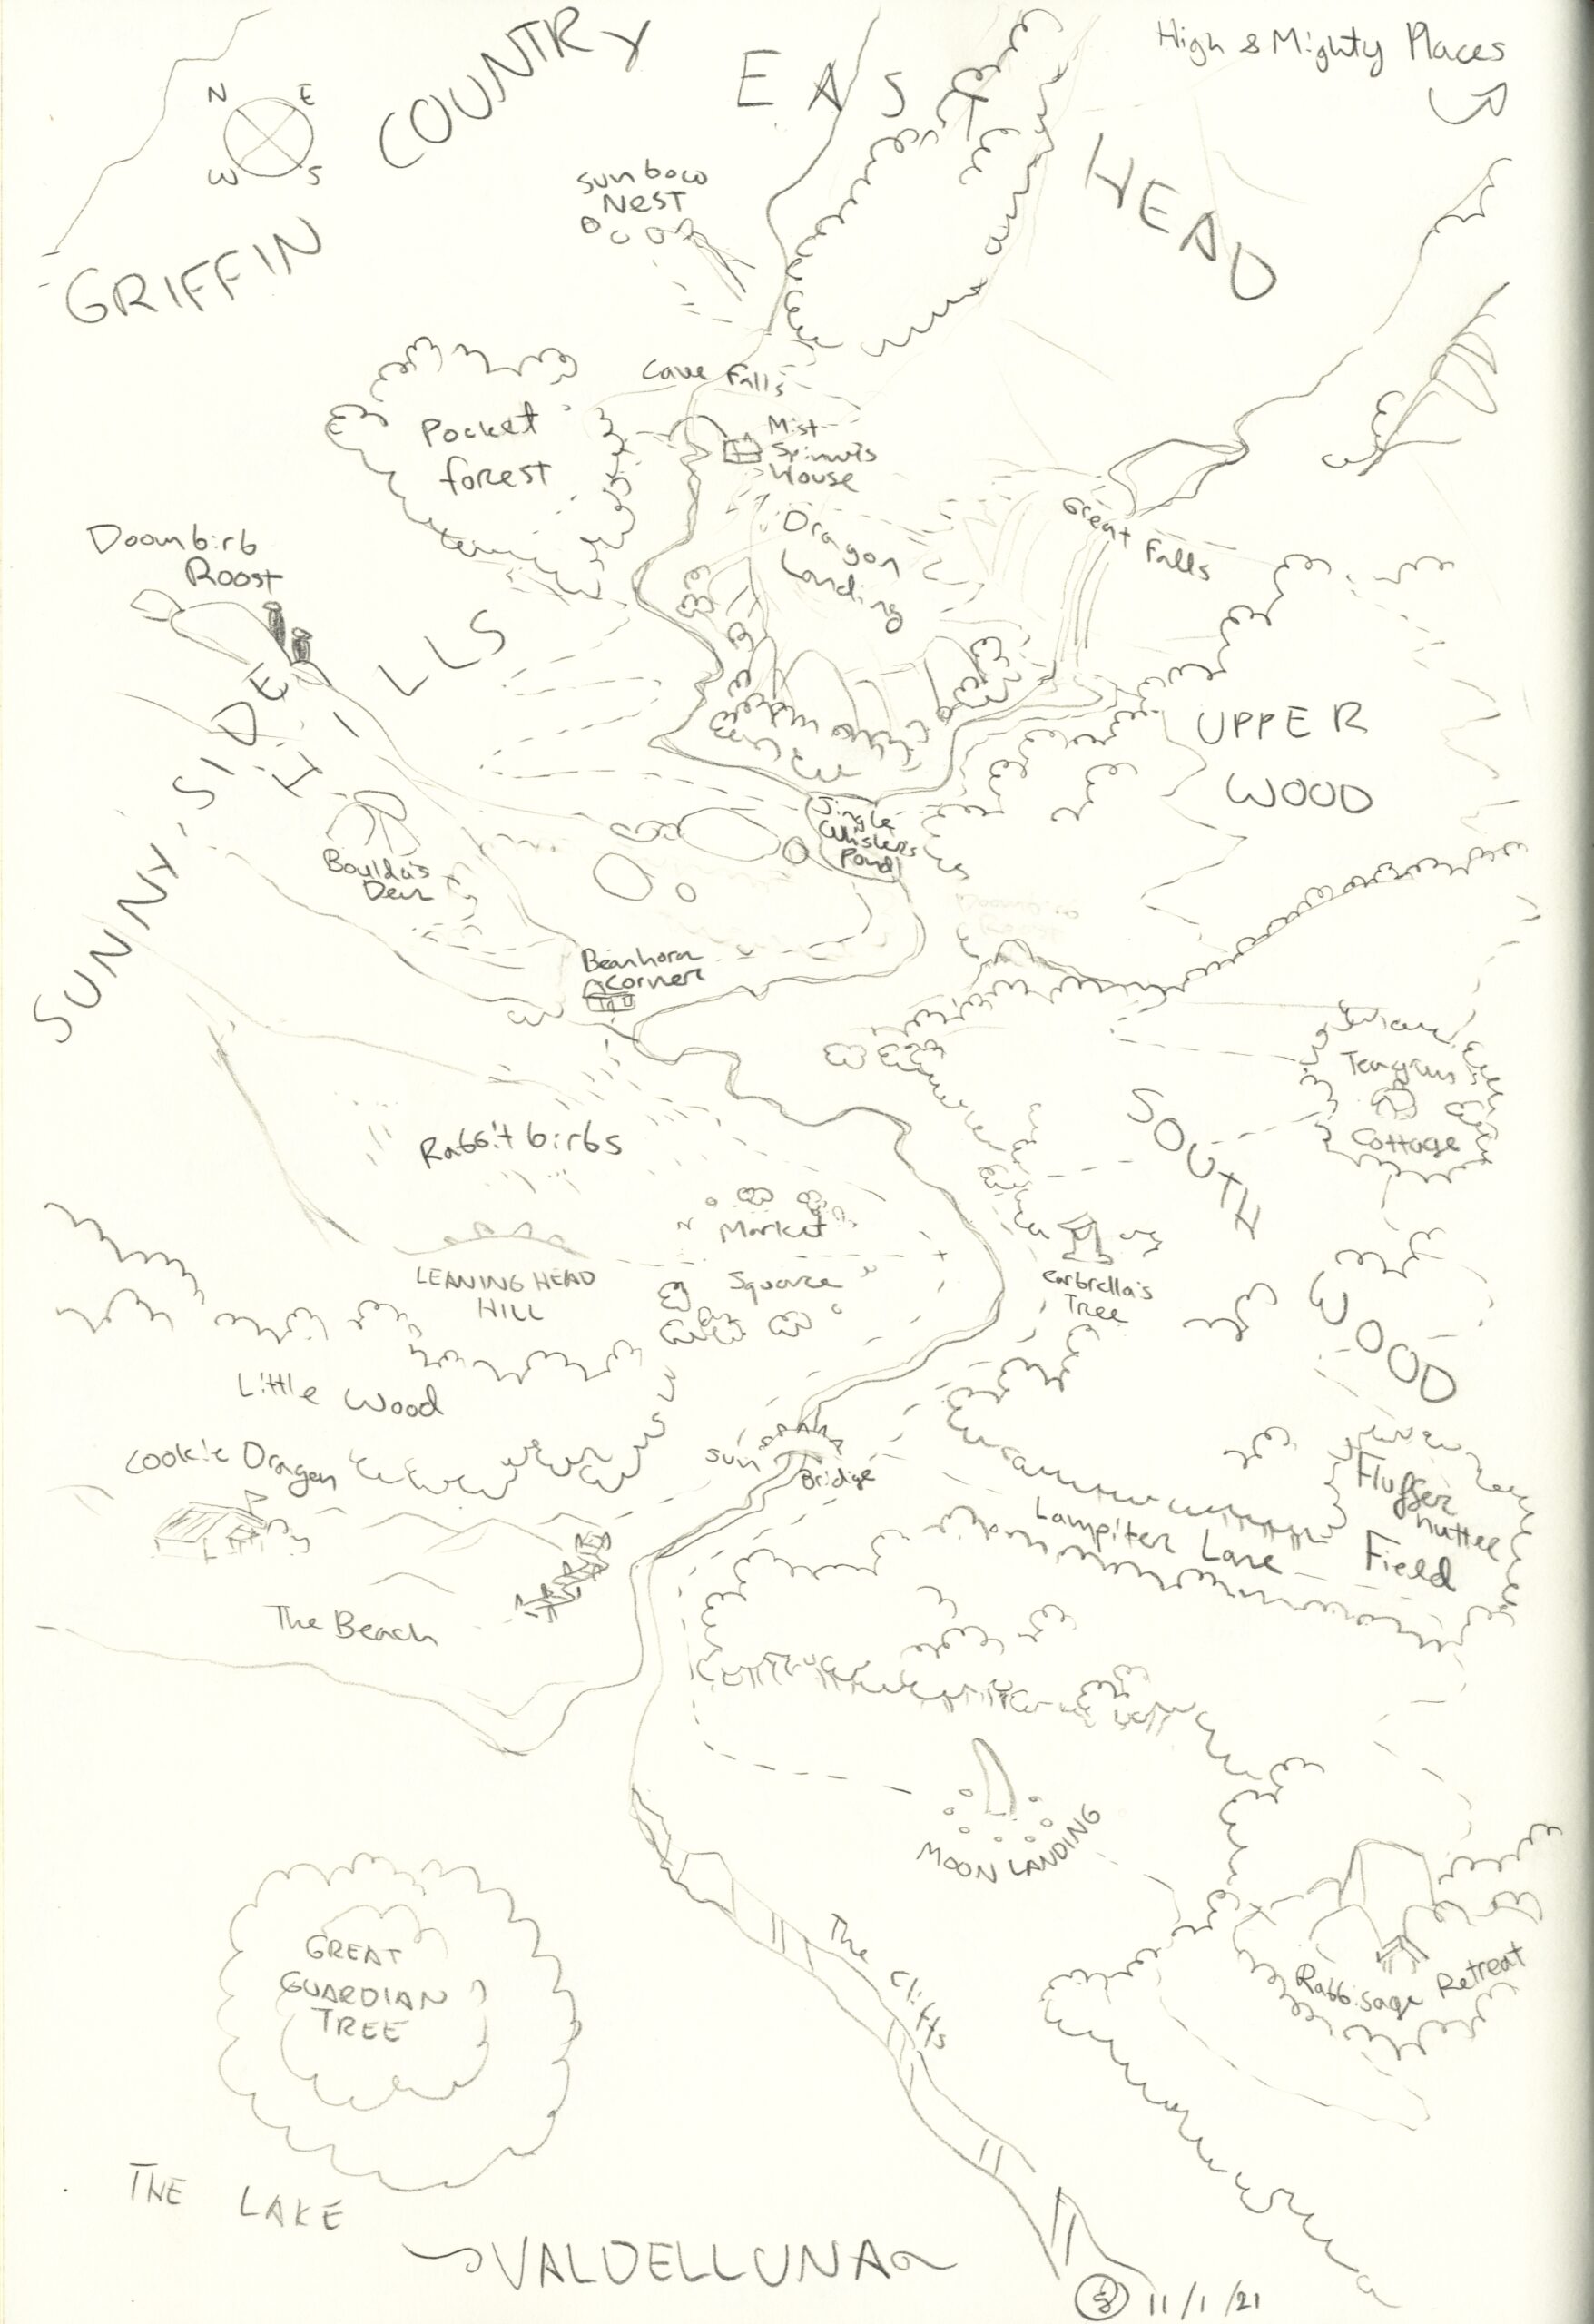 High & Mighty Places
COUNTRY
EAST
HEAD
N
E
W
S
GRIFFIN
Sunbow
Nest
Cave Falls
Pocket
forest
Mist
House
Dragon
Landing
Great Falls
Doombirb
Roost
SUNNY SIDE
HILLS
UPPER
WOOD
Single
Whisker's
Pond
Boulda's
Den
Beanhorn
Corner
Teagrun's
Cottage
SOUTH
WOOD
Rabbitbirbs
Market
Square
LEANING HEAD
HILL
Earbrella's
Tree
Little Wood
Cookie Dragon
Sun
Bridge
Lampiter Lane
Fluffer
nutter
Field
The Beach
MOON LANDING
The Cliffs
Rabbisage Retreat
GREAT
GUARDIAN
TREE
THE LAKE
~VALDELLUNA~
11/1/21